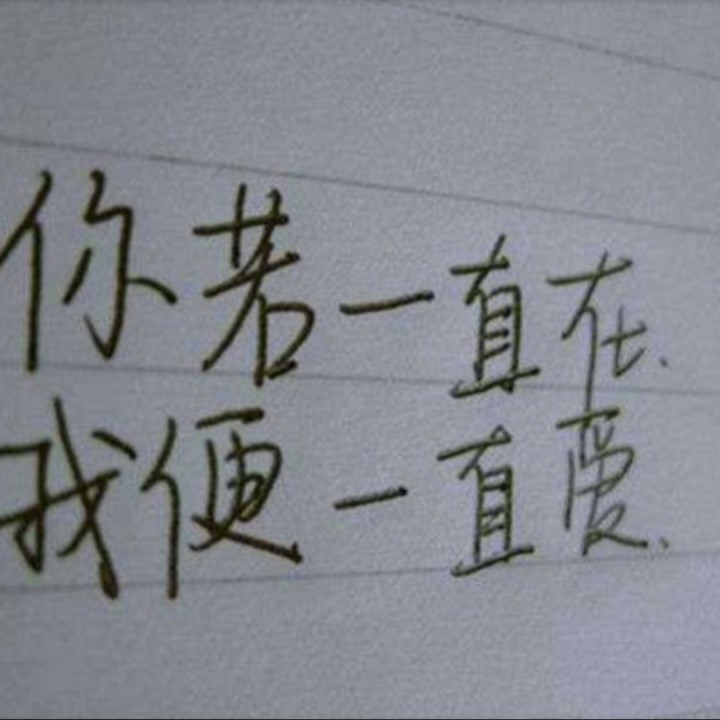 你若一直在、
我便一直爱、